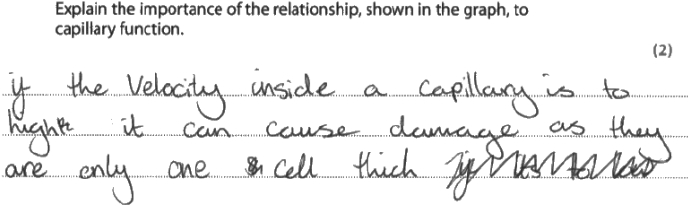 Explain the importance of the relationship, shown in the graph, to
capillary function.
(2)
if the Velocity inside a capillary is to
high it can cause damage as they
are only one cell thick